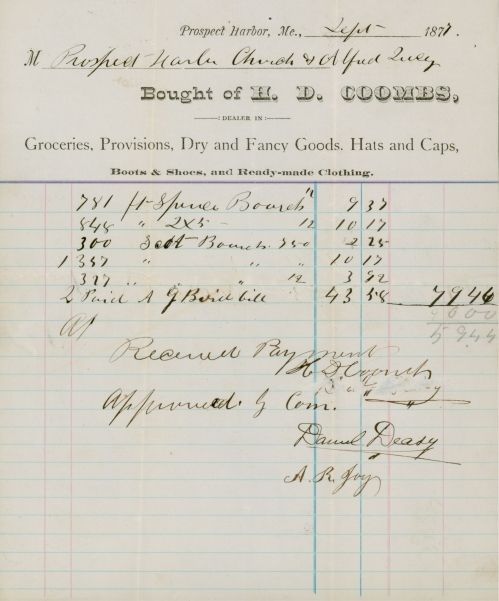 Prospect Harbor, Me., Sept 1877.
M Prospect Harbor Church & Alfred
Bought of H. D. COOMBS,
DEALER IN
Groceries, Provisions, Dry and Fancy Goods. Hats and Caps,
Boots & Shoes, and Ready-made Clothing.
781 ft Spruce Boards " 9 37
848 " 2x5 - 12 10 17
300 Boards 750 2 25
1357 " " " 10 17
327 " " 12 3 92
2 Paid A J bill 43 58 79 46
20 00
59 44
Received Payment
H D Coombs
Approved by Com.
Daniel Deasy
"
A. R. Joy